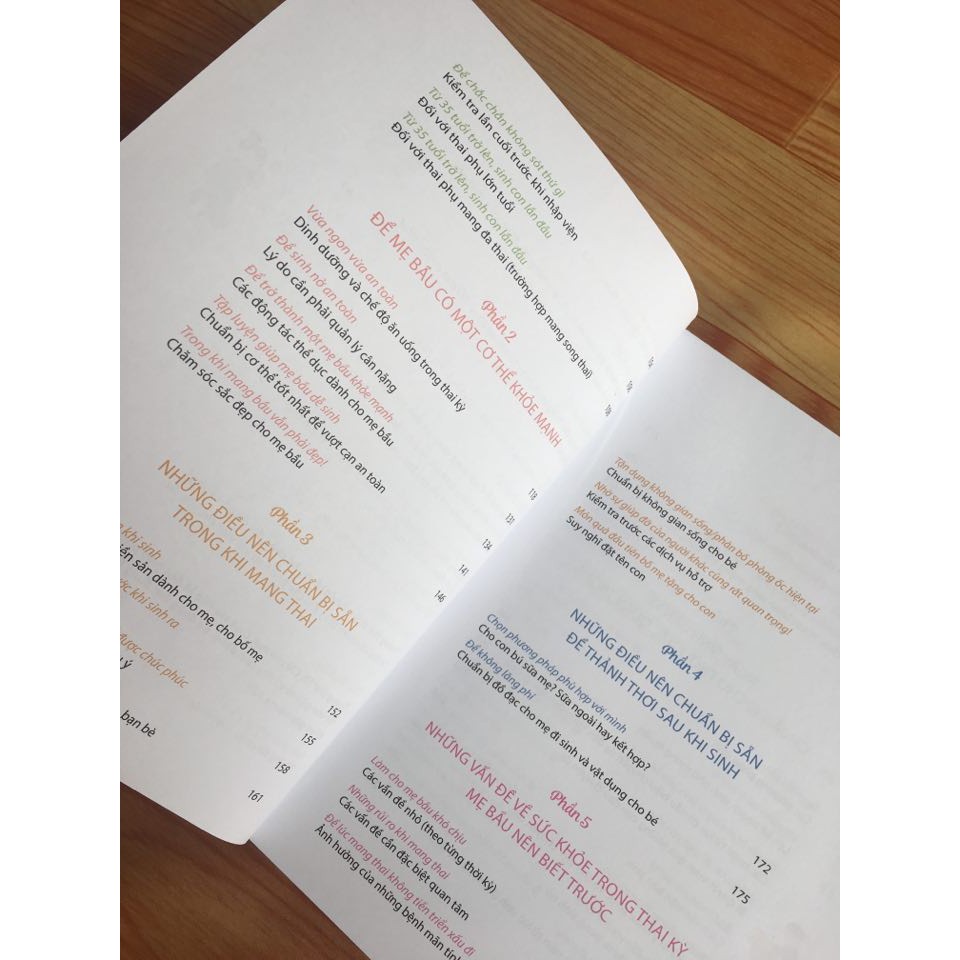 Để chắc chắn không sót thứ gì
Kiểm tra lần cuối trước khi nhập viện
Từ 35 tuổi trở lên, sinh con lần đầu
Đối với thai phụ lớn tuổi
Từ 35 tuổi trở lên, sinh con lần đầu
Đối với thai phụ mang đa thai (trường hợp mang song thai)
Phần 2
ĐỂ MẸ BẦU CÓ MỘT CƠ THỂ KHỎE MẠNH
Vừa ngon vừa an toàn
Dinh dưỡng và chế độ ăn uống trong thai kỳ
118
Để sinh nở an toàn
Lý do cần phải quản lý cân nặng
131
Để trở thành một mẹ bầu khỏe mạnh
Các động tác thể dục dành cho mẹ bầu
134
Tập luyện giúp mẹ bầu dễ sinh
Chuẩn bị cơ thể tốt nhất để vượt cạn an toàn
141
Trong khi mang bầu vẫn phải đẹp!
Chăm sóc sắc đẹp cho mẹ bầu
146
Phần 3
NHỮNG ĐIỀU NÊN CHUẨN BỊ SẴN
TRONG KHI MANG THAI
khi sinh
sản dành cho mẹ, cho bố mẹ
152
khi sinh ra
155
được chúc phúc
ý
158
bạn bè
161
Tận dụng không gian sống/phân bố phòng ốc hiện tại
Chuẩn bị không gian sống cho bé
Nhờ sự giúp đỡ của người khác cũng rất quan trọng!
Kiểm tra trước các dịch vụ hỗ trợ
Món quà đầu tiên bố mẹ tặng cho con
Suy nghĩ đặt tên con
Phần 4
NHỮNG ĐIỀU NÊN CHUẨN BỊ SẴN
ĐỂ THẢNH THƠI SAU KHI SINH
Chọn phương pháp phù hợp với mình
Cho con bú sữa mẹ? Sữa ngoài hay kết hợp?
172
Để không lãng phí
Chuẩn bị đồ đạc cho mẹ đi sinh và vật dụng cho bé
175
Phần 5
NHỮNG VẤN ĐỀ VỀ SỨC KHỎE TRONG THAI KỲ
MẸ BẦU NÊN BIẾT TRƯỚC
Làm cho mẹ bầu khó chịu
Các vấn đề nhỏ (theo từng thời kỳ)
Những rủi ro khi mang thai
Các vấn đề cần đặc biệt quan tâm
Để lúc mang thai không tiến triển xấu đi
Ảnh hưởng của những bệnh mãn tính